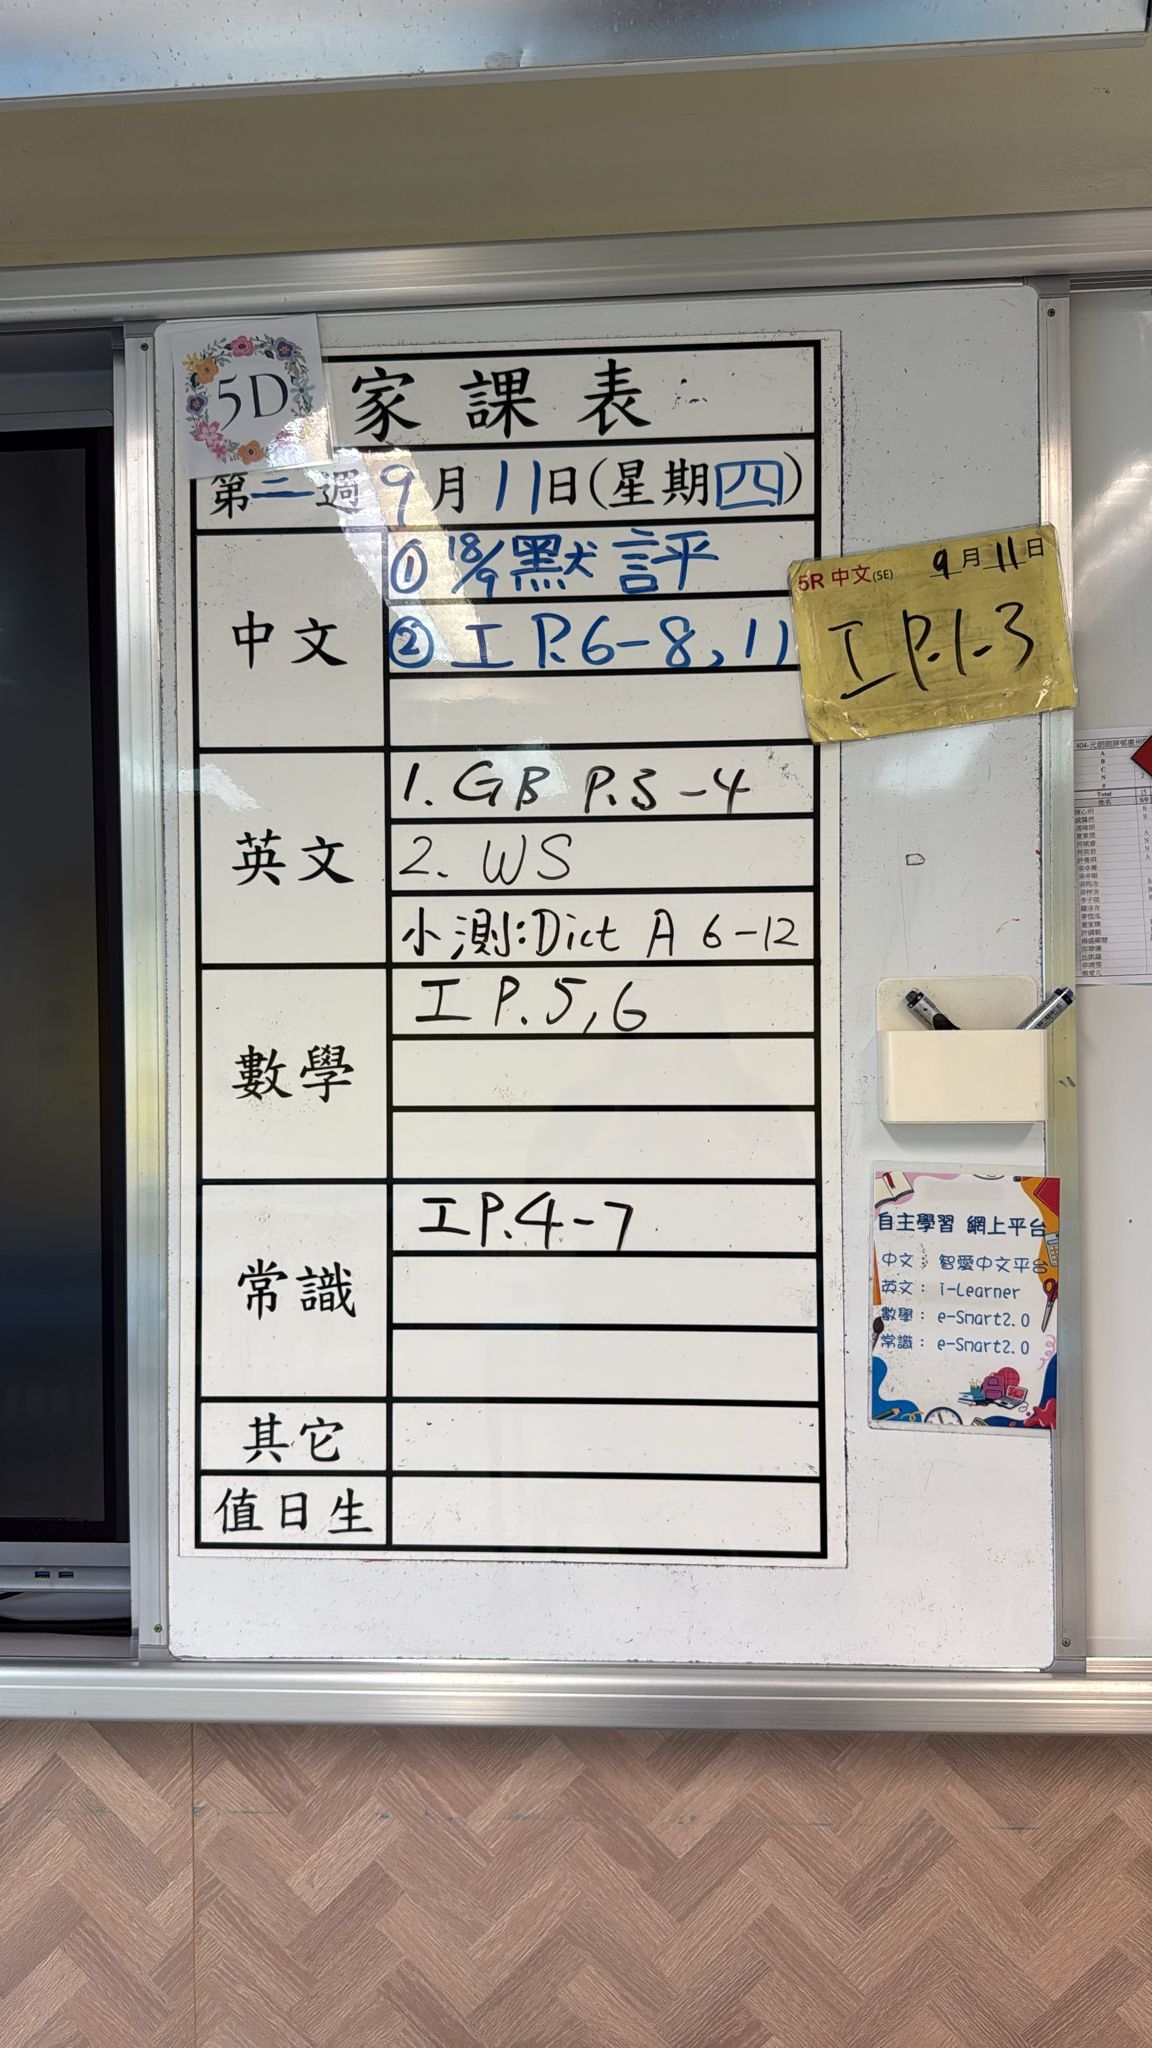 5D
家課表
第二週 9月11日(星期四)
中文
① 18/9 默評
② 工 P.6-8, 11
英文
1. GB P.3-4
2. WS
小測:Dict A 6-12
數學
工 P.5,6
常識
工 P.4-7
其它
值日生
5R 中文(5E) 9月11日
工 P.1-3
自主學習 網上平台
中文: 智愛中文平台
英文: i-Learner
數學: e-Smart2.0
常識: e-Smart2.0
A
B
C
N
Total
姓名